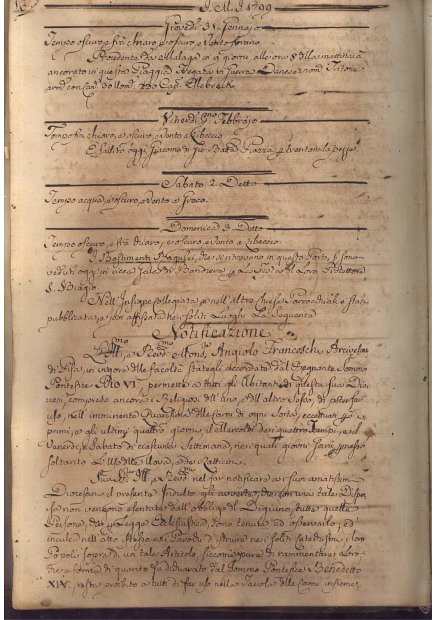 A. M. D. 1799
Giovedì 31. Gennajo
Tempo oscuro, e frà chiaro, e oscuro, e Vento forano
Procedente da Malaga in 9 giorni alle ore 8 di stamattina è
ancorato in questa Spiaggia Fregata in Guerra Danese nom. Tritone
arm. con Can. 40 Uom. 230 Cap.
Venerdì P.mo Febbrajo
Tempo frà chiaro, e oscuro, e Vento a Libeccio
È fallito oggi Giacomo di Gio: Batta Piazza p trentamila pezze
Sabato 2. Detto
Tempo acqua, e oscuro, e Vento a Greco.
Domenica 3. Detto
Tempo oscuro, e frà chiaro, e oscuro, e Vento a Libeccio
I Bastimenti Ragusei, che si trovano in questo Porto, si sono
veduti oggi in Gala di Bandiera p la Festa del Loro Protettore
S. Biagio
Nell' Insigne Collegiata, e nell' altre Chiese Parrocchiali è stata
pubblicata, e poi affissa nei soliti Luoghi la seguente
Notificazione
L' Ill.mo, e Rev.mo Monsig.r Angiolo Franceschi Arcivescovo
di Pisa, in vigore delle facoltà stategli accordate dal Regnante Sommo
Pontefice PIO VI, permette a tutti gli Abitanti di questa sua Dio-
cesi, compreso ancora i Religiosi dell' uno, e dell' altro Sesso, di poter far
uso nell' imminente Quaresima delle carni di ogni Sorte, eccettuati i
primi, e gli ultimi quattro giorni, il Mercoledì dei quattro Tempi, e il
Venerdì, e Sabato di ciascuna Settimana, nei quali giorni sarà permesso
soltanto l' Uso delle Uova, e dei Latticini.
Sua Sig.ria Ill.ma, e Rev.ma nel far notificare ai suoi amatissimi
Diocesani il presente Indulto gli avverte, che con una tale Dispen-
sa non vengono esentate dall' obbligo del Digiuno, tutte quelle
Persone, che p Legge Ecclesiastica sono tenute ad osservarlo, ed
incarica nell' atto stesso ai Parochi d' istruire nei soliti Catechismi i loro
Popoli sopra di un tale Articolo, siccome pure di rammentare Loro
che a forma di quanto fù dichiarato dal Sommo Pontefice Benedetto
XIV. resta proibito a tutti di far uso nelle Tavole delle carni insieme,